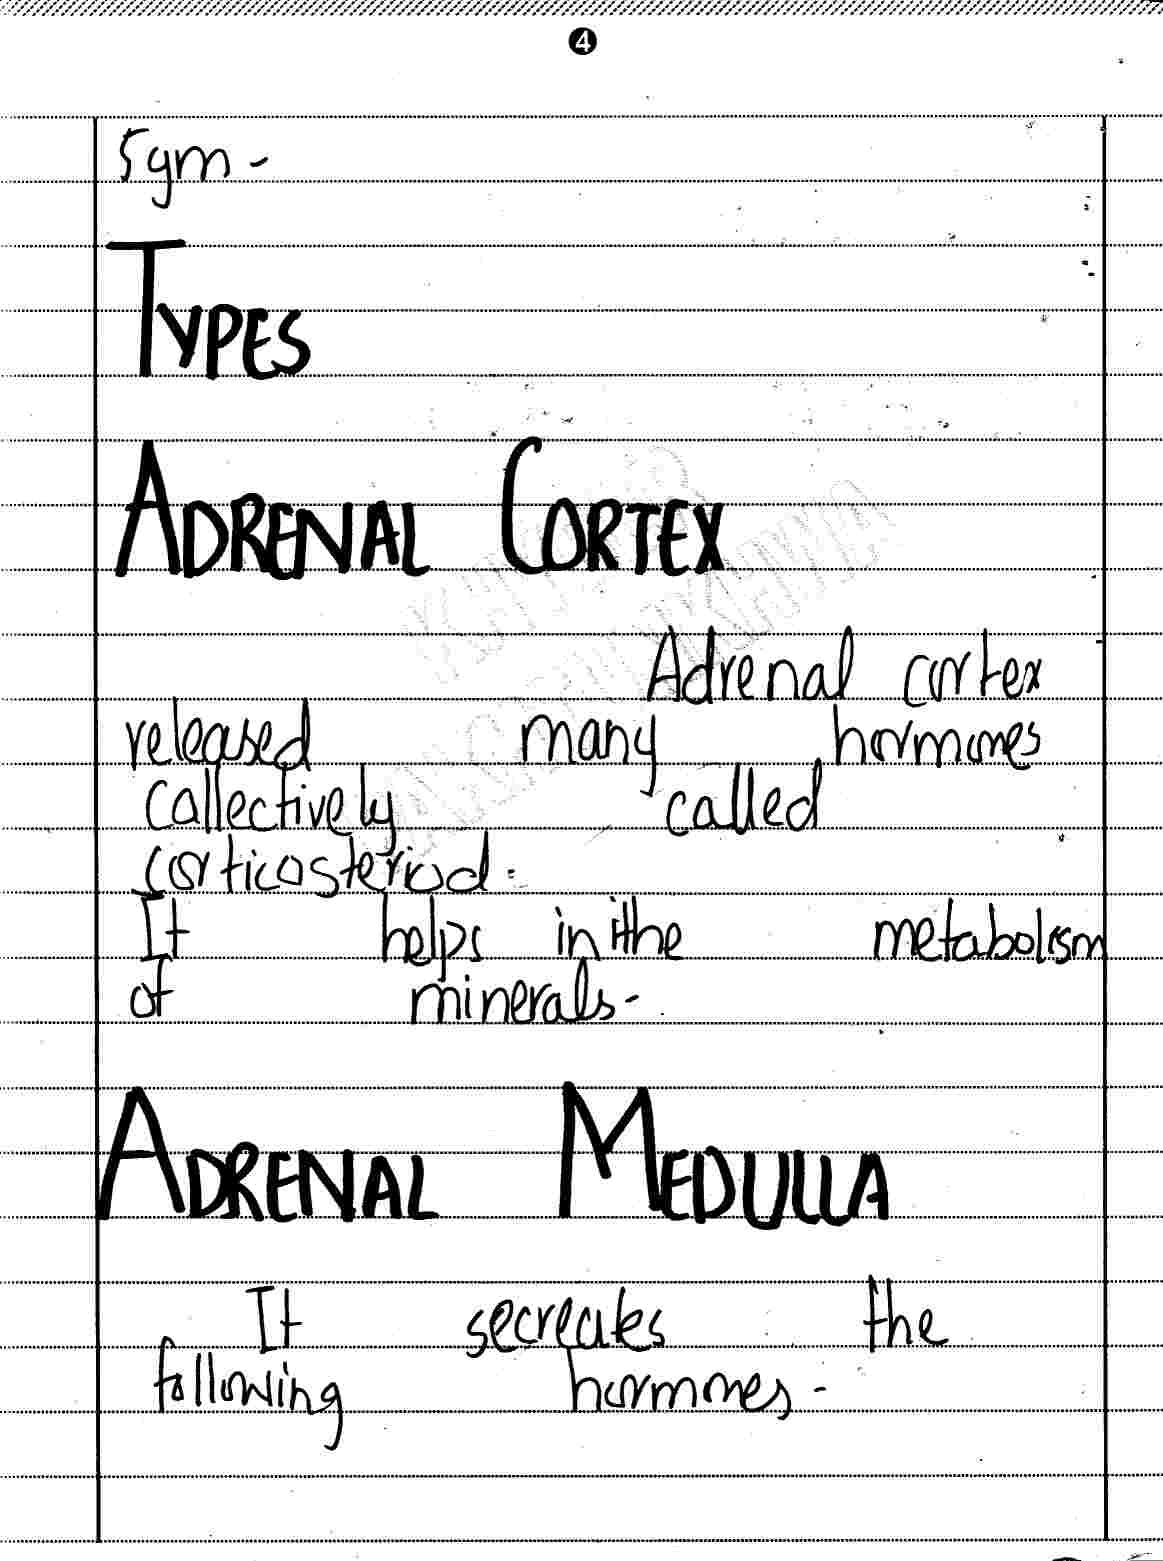 4
5gm-
TYPES
ADRENAL CORTEX
Adrenal cortex
released many hormones
collectively called
corticosteriod.
It helps in the metabolism
of minerals-
ADRENAL MEDULLA
It secreates the
following hormones-